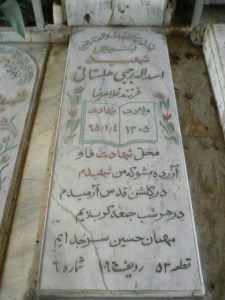 شهید
اسداله رجبی ملستانی
فرزند غلامرضا
ولادت شهادت
۱۳۰۵ ۶۵/۱/۰۴
محل شهادت فاو
آزرده مشو که من شهیدم
در گلشن قدس آرمیدم
در هر شب جمعه کربلایم
مهمان حسین سر جدایم
قطعه ۵۳ ردیف ۱۰۹ شماره ۶